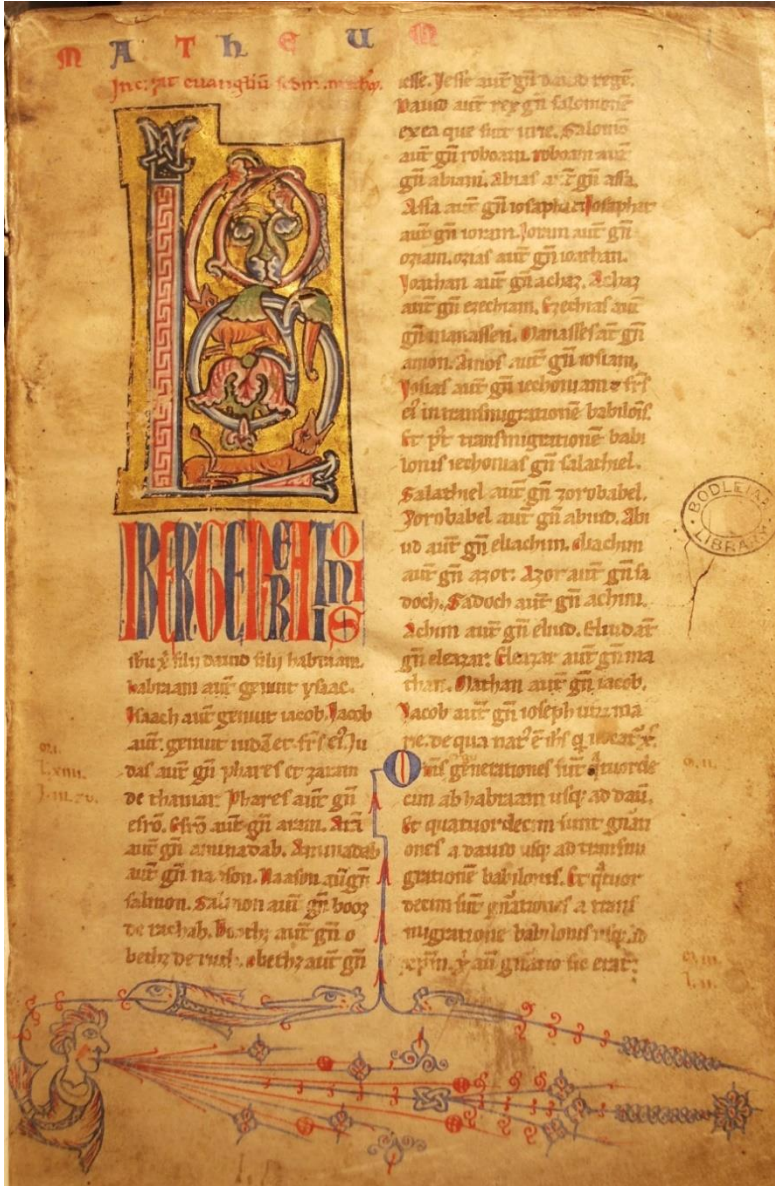 MATHEUM
Incipit euangliū scdm matheū.
LIBER GENERATIONIS
ihu xp̄i filii dauid filii habraam.
habraam aut̄ genuit ysaac.
ysaach aut̄ genuit iacob. Jacob
aut̄. genuit iudā et fr̄s ei'. Ju
das aut̄ gn̄ phares et zaram
de thamar. Phares aut̄ gn̄
esrō. Esrō aut̄ gn̄ aram. Arā
aut̄ gn̄ aminadab. Aminadab
aut̄ gn̄ nason. Naason aut̄ gn̄
salmon. Salmon aut̄ gn̄ booz
de rachab. Booz aut̄ gn̄ o
beth de ruth. obeth aut̄ gn̄
iesse. Jesse aut̄ gn̄ dauid regē.
Dauid aut̄ rex gn̄ salomonē
ex ea que fuit urie. Salomō
aut̄ gn̄ roboam. roboam aut̄
gn̄ abiam. Abias aut̄ gn̄ assa.
Assa aut̄ gn̄ iosaphat. Josaphat
aut̄ gn̄ ioram. Joram aut̄ gn̄
oziam. ozias aut̄ gn̄ ioathan.
Joathan aut̄ gn̄ achaz. Achaz
aut̄ gn̄ ezechiam. Ezechias aut̄
gn̄ manassen. Manasses at̄ gn̄
amon. Amos aut̄ gn̄ iosiam.
Josias aut̄ gn̄ iechoniam & fr̄s
ei' in transmigrationē babilōis.
Et p't transmigrationē babi
lonis iechonias gn̄ salathiel.
Salathiel aut̄ gn̄ zorobabel.
Zorobabel aut̄ gn̄ abiud. Abi
ud aut̄ gn̄ eliachim. eliachim
aut̄ gn̄ azor. Azor aut̄ gn̄ sa
doch. Sadoch aut̄ gn̄ achim.
Achim aut̄ gn̄ eliud. Eliud at̄
gn̄ eleazar. Eleazar aut̄ gn̄ ma
than. Mathan aut̄ gn̄ iacob.
Jacob aut̄ gn̄ ioseph uirū ma
rie. de qua nat' ē ihs q̄ uocat' xp̄s
Om̄s generationes sunt quatuorde
cim ab habraam usq; ad dauid.
Et quatuordecim sunt gn̄ati
ones a dauid usq; ad transmi
grationē babilonis. Et q̄tuor
decim sūt gn̄ationes a trans
migratione babilonis usq; ad
xp̄m. xp̄i aut̄ gn̄atio sic erat.
BODLEIAN
LIBRARY